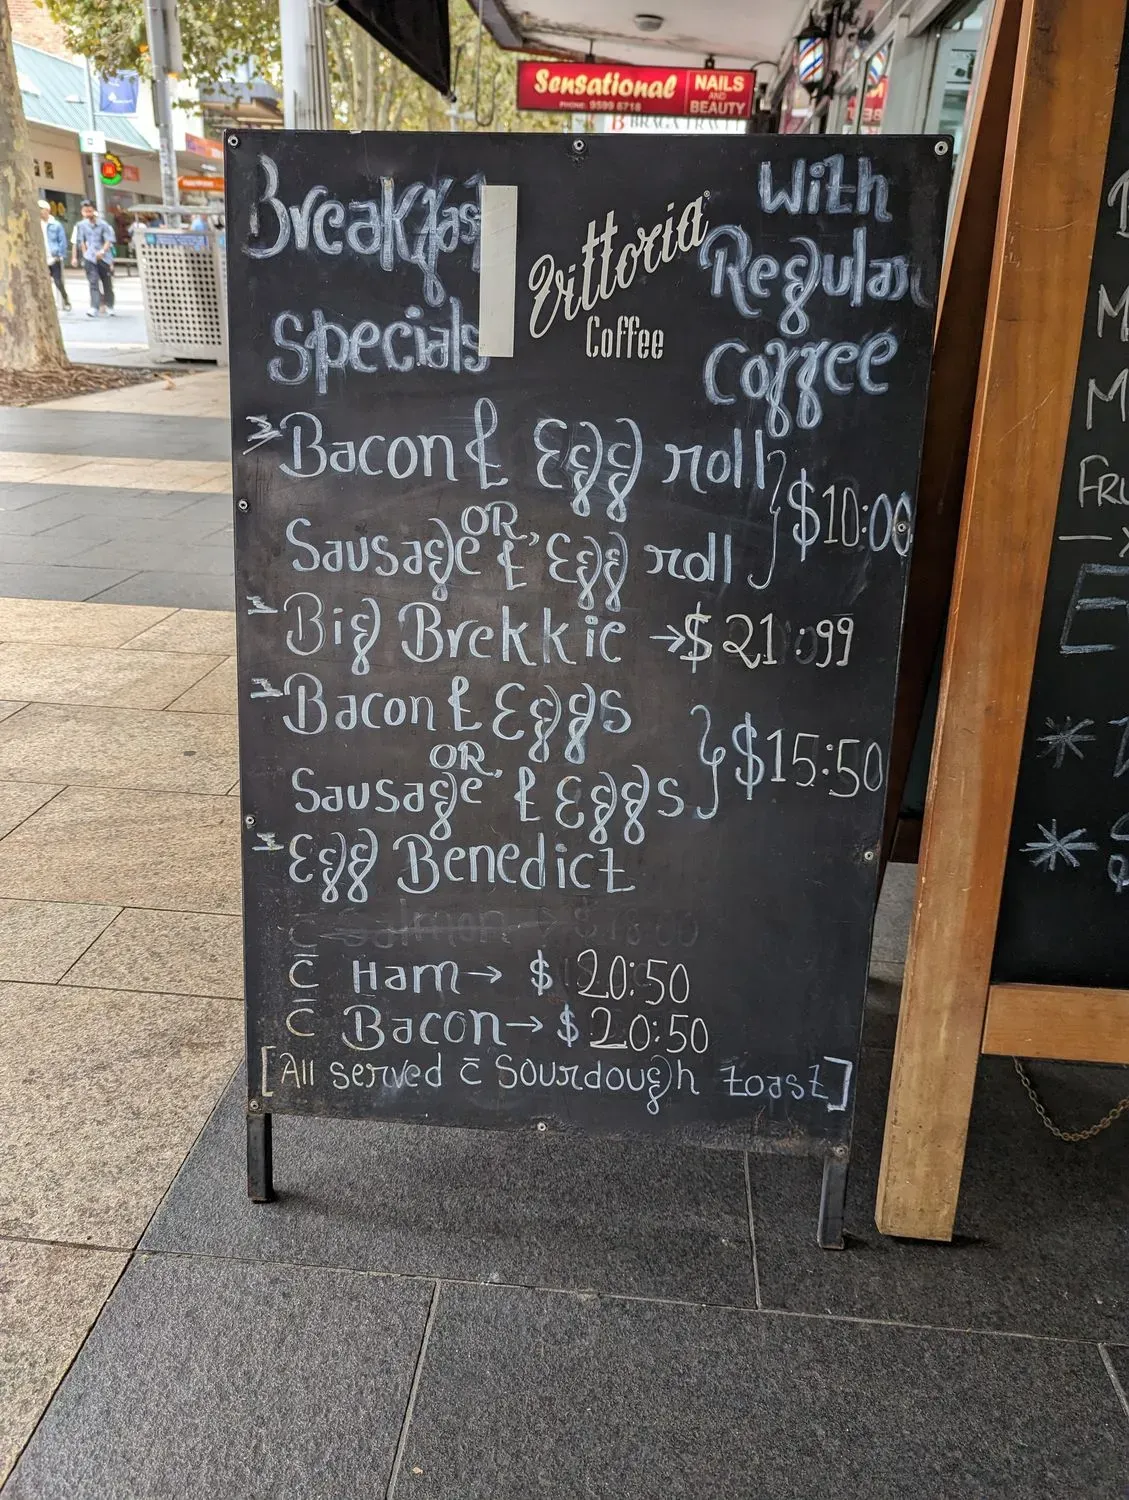 Sensational
NAILS
AND
BEAUTY
PHONE: 9599 6718
Breakfast
Specials
Vittoria®
Coffee
With
Regular
Coffee
Bacon & Egg roll
OR,
Sausage & Egg roll
} $10:00
Big Brekkie → $21:99
Bacon & Eggs
OR,
Sausage & Eggs
} $15:50
Egg Benedict
c̄ Salmon → $18:00
c̄ Ham → $20:50
c̄ Bacon → $20:50
[All served c̄ Sourdough toast]